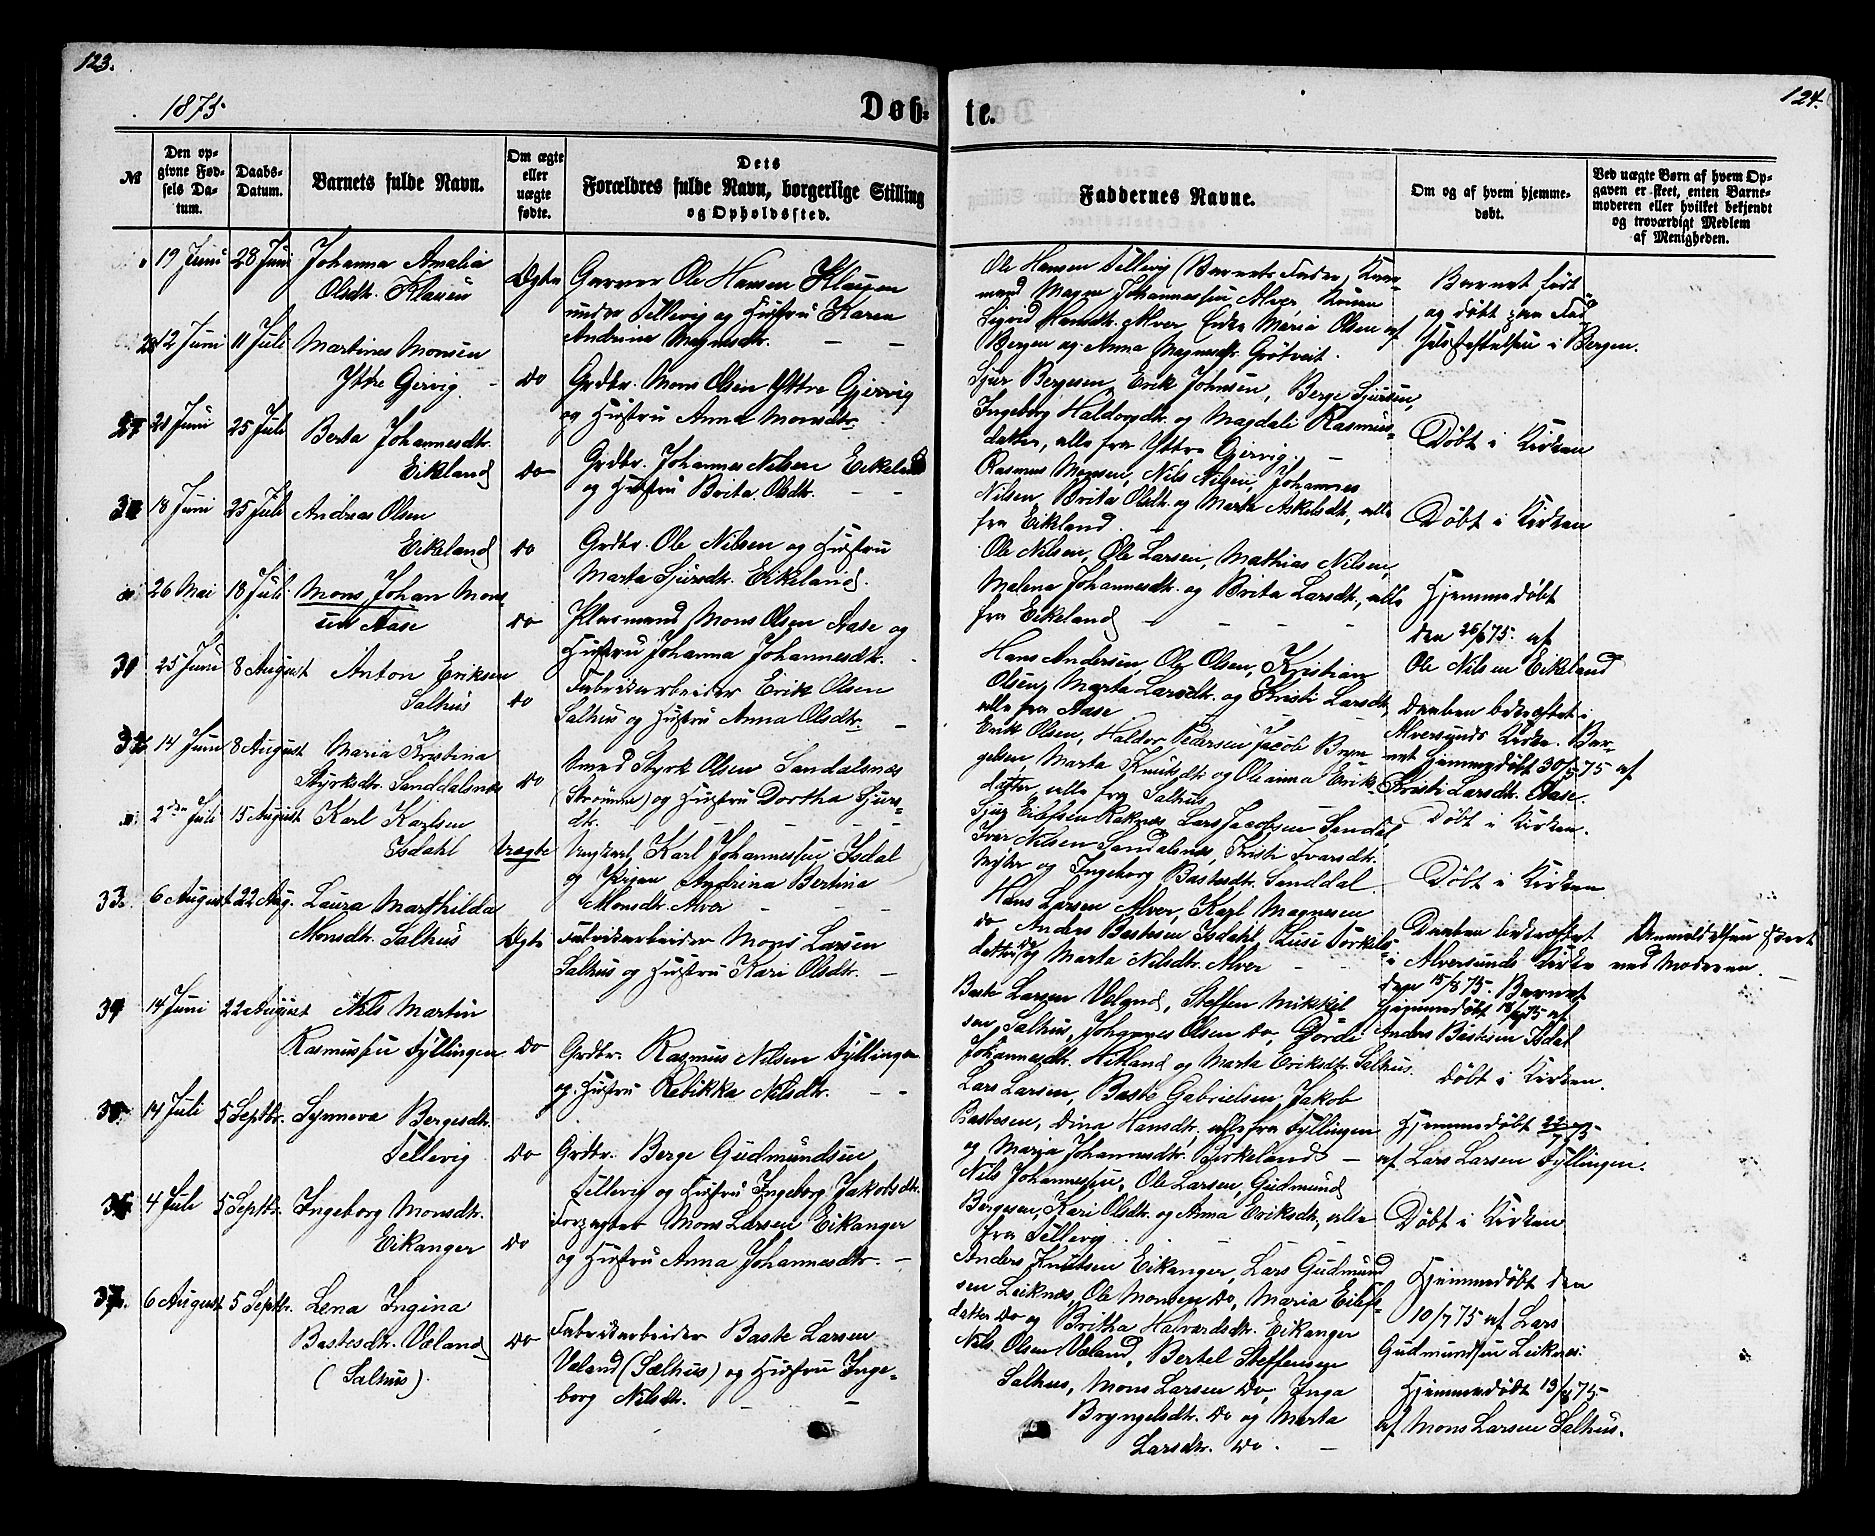 123.
1875
Døb-
No
Den op-
givne Fød-
sels Da-
tum.
Daabs-
Datum.
Barnets fulde Navn.
Om ægte
eller
uægte
fødte.
Dets
Forældres fulde Navn, borgerlige Stilling
og Opholdssted.
19 Juni 28 Juni Johanna Amalia
Olsdtr. Klauen
Ægte
Garver Ole Hansen Klaugen
under Tellevig og Hustru Karen
Andrina Magnsdtr. — —
12 Juni 11 Juli Martines Monsen
Ytre Gjervig - do
Grdbr. Mons Olsen Yttre Gjervig
og Hustru Anna Monsdtr.
21 Juni 25 Juli Berta Johannesdtr.
Eikeland do
Grdbr. Johannes Nilsen Eikeland
og Hustru Brita Olsdtr. — —
18 Juni 25 Juli Andreas Olsen
Eikeland do
Grdbr. Ole Nilsen og Hustru
Marta Sjursdtr. Eikeland.
26 Mai 18 Juli Mons Johan Mons-
sen Aase do
Pladsmand Mons Olsen Aase og
Hustru Johanna Johannesdtr.
25 Juni 8 August Anton Eriksen
Salhus do
Fabrikarbeider Erik Olsen
Salhus og Hustru Anna Olsdtr. —
14 Juni 8 August Maria Kristina
Styrksdtr. Sanddalsnæs do
Smed Styrk Olsen Sandalsnæs
(Strømme) og Hustru Dortha Sjurs-
dtr. — — — —
2den Juli 15 August Karl Karlsen
Isdahl Uægte
Ungkarl Karl Johannessen Isdal
og Pigen Andrina Bertina
Monsdtr. Alver — — —
33. 6 August 22 Aug. Laura Marthilda
Monsdtr. Salhus Ægte
Fabrikarbeider Mons Larsen
Salhus og Hustru Kari Olsdtr. —
34 14 Juni 22 August Nils Martin
Rasmussen Fyllingen do
Grdbr. Rasmus Nilsen Fyllingen
og Hustru Rebikka Nilsdtr. — —
14 Juli 5 Septbr. Synneva Bergesdtr.
Tellevig do
Grdbr. Berge Gudmundsen
Tellevig og Hustru Ingeborg Jakobsdtr.
4 Juli 5 Septbr. Ingeborg Monsdtr.
Eikanger do
Forpagter Mons Larsen Eikanger
og Hustru Anna Johannesdtr. —
37. 6 August 5 Septbr. Lena Ingina
Bastesdtr. Væland do
(Salhus)
Fabrikarbeider Baste Larsen
Væland (Salhus) og Hustru Inge-
borg Nilsdtr. — —
124.
te.
Faddernes Navne.
Om og af hvem hjemme-
døbt.
Ved uægte Børn af hvem Op-
gaven er skeet, enten Barne-
moderen eller hvilket bekjendt
og troværdigt Medlem
af Menigheden.
Ole Hansen Tellevig (Barnets Fader)
mand Magne Johannessen Alver, Konen
Sigrid Hansdtr. Alver, Enke Maria Olsen af
Bergen og Anna Magnesdtr. Grøtveit.
Barnet født
og døbt paa Fød-
selsstiftelsen i Bergen.
Sjur Bergesen, Erik Johnsen, Berge Sjursen,
Ingeborg Haldorsdtr. og Magdali Rasmus-
datter, alle fra Yttre Gjervig. —
Døbt i Kirken
Rasmus Monsen, Nils Nilsen, Johannes
Nilsen, Brita Olsdtr. og Marta Askelsdtr., alle
fra Eikeland. —
Døbt i Kirken
Ole Nilsen, Ole Larsen, Mathias Nilsen,
Malena Johannesdtr. og Brita Larsdtr., alle
fra Eikeland — — — —
Hjemmedøbt
den 26/6 75 af
Ole Nilsen Eikeland
Hans Andersen, Ole Olsen, Kristian
Olsen, Marta Larsdtr. og Kristi Larsdtr,
alle fra Aase
Daaben bekræftet i
Alversunds Kirke. Bar-
net hjemmedøbt 30/5 75 af
Kristi Larsdtr. Aase.
Erik Olsen, Haldor Pedersen, Jacob Bryn-
gelsen, Marta Knutsdtr og Oleanna Eriks-
datter, alle fra Salhus.
Døbt i Kirken.
Sjur Eilefsen Raknæs, Lars Jacobsen Sandal,
Ivar Nilsen Sandalsnæs, Kristi Ivarsdtr.
og Ingeborg Bastesdtr. Sanddal
Døbt i Kirken.
Hans Larsen Alver, Karl Magnesen
do Anders Bastesen Isdahl, Lusi Torkels-
datter do og Marta Nilsdtr. Alver — —
Daaben bekræftet
i Alversunds Kirke
den 15/8 75 Barnet
hjemmedøbt af
Anders Bastesen Isdal
Anmeldelsen skeet
ved Moderen. —
Baste Larsen Væland, Steffen Mikkel-
sen Salhus, Johannes Olsen do, Dorde
Johannesdtr. Hitland og Marta Eriksdtr. Salhus.
Døbt i Kirken.
Lars Larsen, Baste Gabrielsen, Jakob
Bastesen, Dina Hansdtr., alle fra Fyllingen
og Maria Johannesdtr. Birkeland —
Hjemmedøbt
af Lars Larsen Fyllingen.
Nils Johannessen, Ole Larsen, Gudmund
Bergesen, Kari Olsdtr. og Anna Eriksdtr., alle
fra Tellevig.
Døbt i Kirken
Anders Knutsen Eikanger, Lars Gudmund-
sen Leiknæs, Ole Monsen do, Maria Eilefs-
datter do og Britha Halvardsdtr. Eikanger
Hjemmedøbt den
10/7 75 af Lars
Gudmundsen Leiknæs.
Nils Olsen Væland, Bertel Steffensen
Salhus, Mons Larsen do, Inga
Bryngelsdtr. do og Marta
Larsdtr. do. —
Hjemmedøbt 13/8 75
af Mons Larsen Salhus.